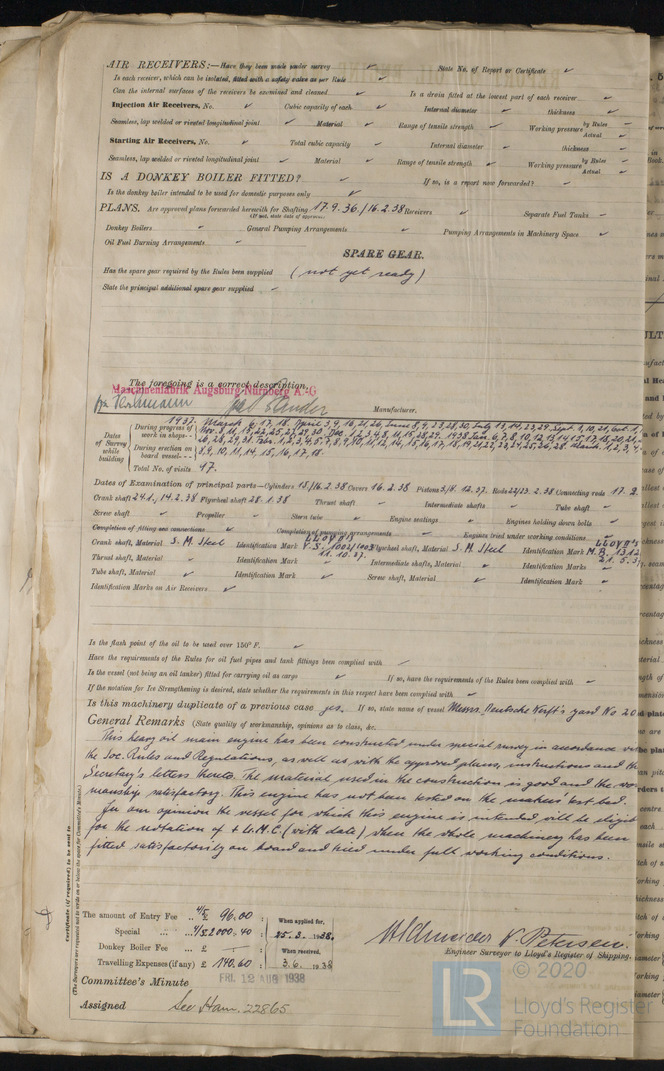 AIR RECEIVERS:—Have they been made under survey ✓ State No. of Report or Certificate ✓
Is each receiver, which can be isolated, fitted with a safety valve as per Rule ✓
Can the internal surfaces of the receivers be examined and cleaned ✓ Is a drain fitted at the lowest part of each receiver ✓
Injection Air Receivers, No. ✓ Cubic capacity of each ✓ Internal diameter ✓ thickness ✓
Seamless, lap welded or riveted longitudinal joint ✓ Material ✓ Range of tensile strength ✓ Working pressure by Rules Actual
Starting Air Receivers, No. ✓ Total cubic capacity Internal diameter ✓ thickness
Seamless, lap welded or riveted longitudinal joint ✓ Material ✓ Range of tensile strength ✓ Working pressure by Rules ✓ Actual ✓
IS A DONKEY BOILER FITTED? ✓ If so, is a report now forwarded? ✓
Is the donkey boiler intended to be used for domestic purposes only ✓
PLANS. Are approved plans forwarded herewith for Shafting 17.9.36./16.2.38 Receivers ✓ Separate Fuel Tanks
(If not, state date of approval)
Donkey Boilers ✓ General Pumping Arrangements ✓ Pumping Arrangements in Machinery Space ✓
Oil Fuel Burning Arrangements ✓
SPARE GEAR.
Has the spare gear required by the Rules been supplied (not yet ready)
State the principal additional spare gear supplied ✓
The foregoing is a correct description,
Maschinenfabrik Augsburg-Nürnberg A.-G
Manufacturer.
Dates of Survey while building
During progress of work in shops - - 1937.
During erection on board vessel - - -
Total No. of visits 97.
Dates of Examination of principal parts—Cylinders 15/16.2.38 Covers 16.2.38 Pistons Rods 22/23.2.38 Connecting rods
Crank shaft 24.1, 14.2.38 Flywheel shaft 28.1.38 Thrust shaft ✓ Intermediate shafts ✓ Tube shaft ✓
Screw shaft ✓ Propeller ✓ Stern tube ✓ Engine seatings ✓ Engines holding down bolts ✓
Completion of fitting sea connections ✓ Completion of pumping arrangements ✓ Engines tried under working conditions ✓
Crank shaft, Material S. M. Steel Identification Mark LLOYD'S 11.10.37. Flywheel shaft, Material S. M. Steel Identification Mark LLOYD'S
Thrust shaft, Material ✓ Identification Mark ✓ Intermediate shafts, Material ✓ Identification Marks ✓
Tube shaft, Material ✓ Identification Mark ✓ Screw shaft, Material ✓ Identification Mark ✓
Identification Marks on Air Receivers ✓
Is the flash point of the oil to be used over 150° F. ✓
Have the requirements of the Rules for oil fuel pipes and tank fittings been complied with ✓
Is the vessel (not being an oil tanker) fitted for carrying oil as cargo ✓ If so, have the requirements of the Rules been complied with ✓
If the notation for Ice Strengthening is desired, state whether the requirements in this respect have been complied with ✓
Is this machinery duplicate of a previous case yes. If so, state name of vessel Messrs. Deutsche Werft's yard No 20
General Remarks (State quality of workmanship, opinions as to class, &c.
This heavy oil main engine has been constructed under special survey in accordance
the Soc. Rules and Regulations, as well as with the approved plans, instructions and the
Secretary's letters thereto. The material used in the construction is good and the wor
manship satisfactory. This engine has not been tested on the makers' test bed.
In our opinion the vessel for which this engine is intended will be eligib
for the notation of + L.M.C. (with date) when the whole machinery has been
fitted satisfactorily on board and tried under full working conditions.
Certificate (if required) to be sent to
(The Surveyors are requested not to write on or below the space for Committee's Minute.)
The amount of Entry Fee .. £ 96.00 : When applied for,
Special ... : 25.3.1938.
Donkey Boiler Fee .. £ — : When received,
Travelling Expenses (if any) £ 140.60 : 3.6.1938
W Schneider V. Petersen.
Engineer Surveyor to Lloyd's Register of Shipping.
Committee's Minute FRI. 12 AUG 1938
Assigned See Ham. 22865
LR © 2020
Lloyd's Register
Foundation